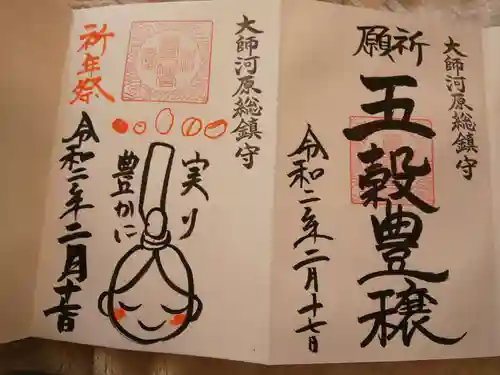 大師河原総鎮守
祈願
五穀豊穣
令和二年二月十七日
大師河原総鎮守
祈年祭
実り
豊かに
令和二年二月十七日